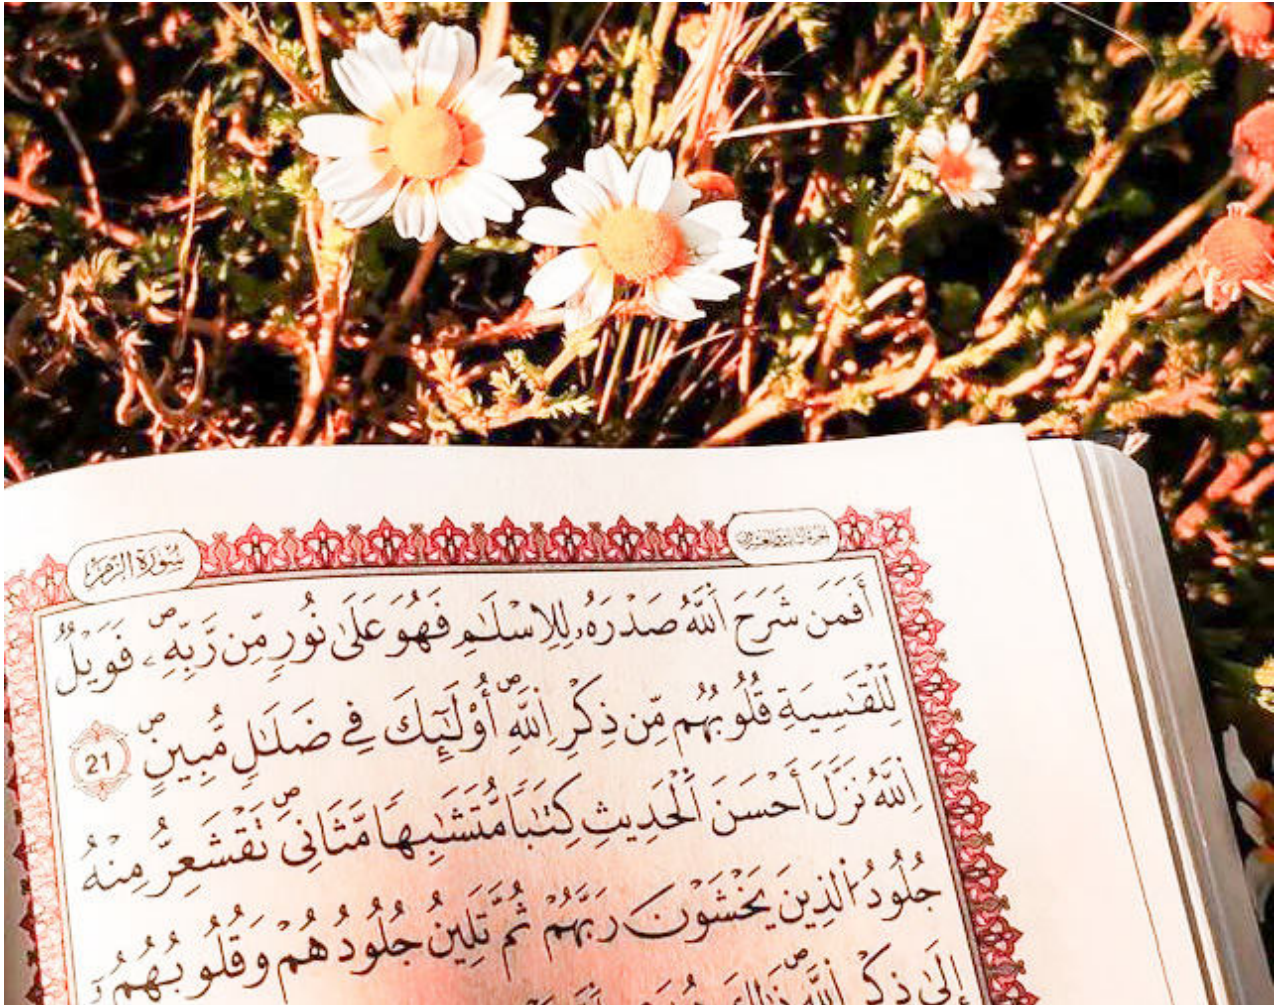 سُورَةُ الزُّمَرِ
أَفَمَن شَرَحَ اَ۬للَّهُ صَدْرَهُۥ لِلِاسْلَٰمِ فَهُوَ عَلَىٰ نُورٖ مِّن رَّبِّهِۦۖ فَوَيْلٞ
لِّلْقَٰسِيَةِ قُلُوبُهُم مِّن ذِكْرِ اِ۬للَّهِۖ أُوْلَٰٓئِكَ فِے ضَلَٰلٖ مُّبِينٍۖ 21
اِ۬للَّهُ نَزَّلَ أَحْسَنَ اَ۬لْحَدِيثِ كِتَٰباٗ مُّتَشَٰبِهاٗ مَّثَانِيَۖ تَقْشَعِرُّ مِنْهُ
جُلُودُ اُ۬لذِينَ يَخْشَوْنَ رَبَّهُمْ ثُمَّ تَلِينُ جُلُودُهُمْ وَقُلُوبُهُمُۥٓ
إِلَىٰ ذِكْرِ اِ۬للَّهِۖ ذَٰلِكَ